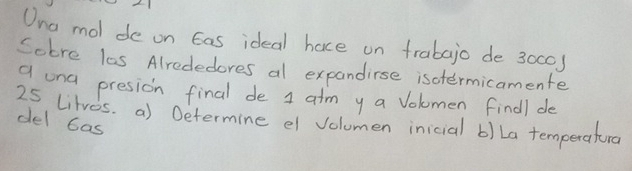 Una mol de un Gas ideal hace un trabajo de 3000J
Sobre las Alrededores al expandirse isotérmicamente
a una presión final de 1 atm y a Volumen final de
25 Litros. a) Determine el Volumen inicial b) La temperatura
del Gas